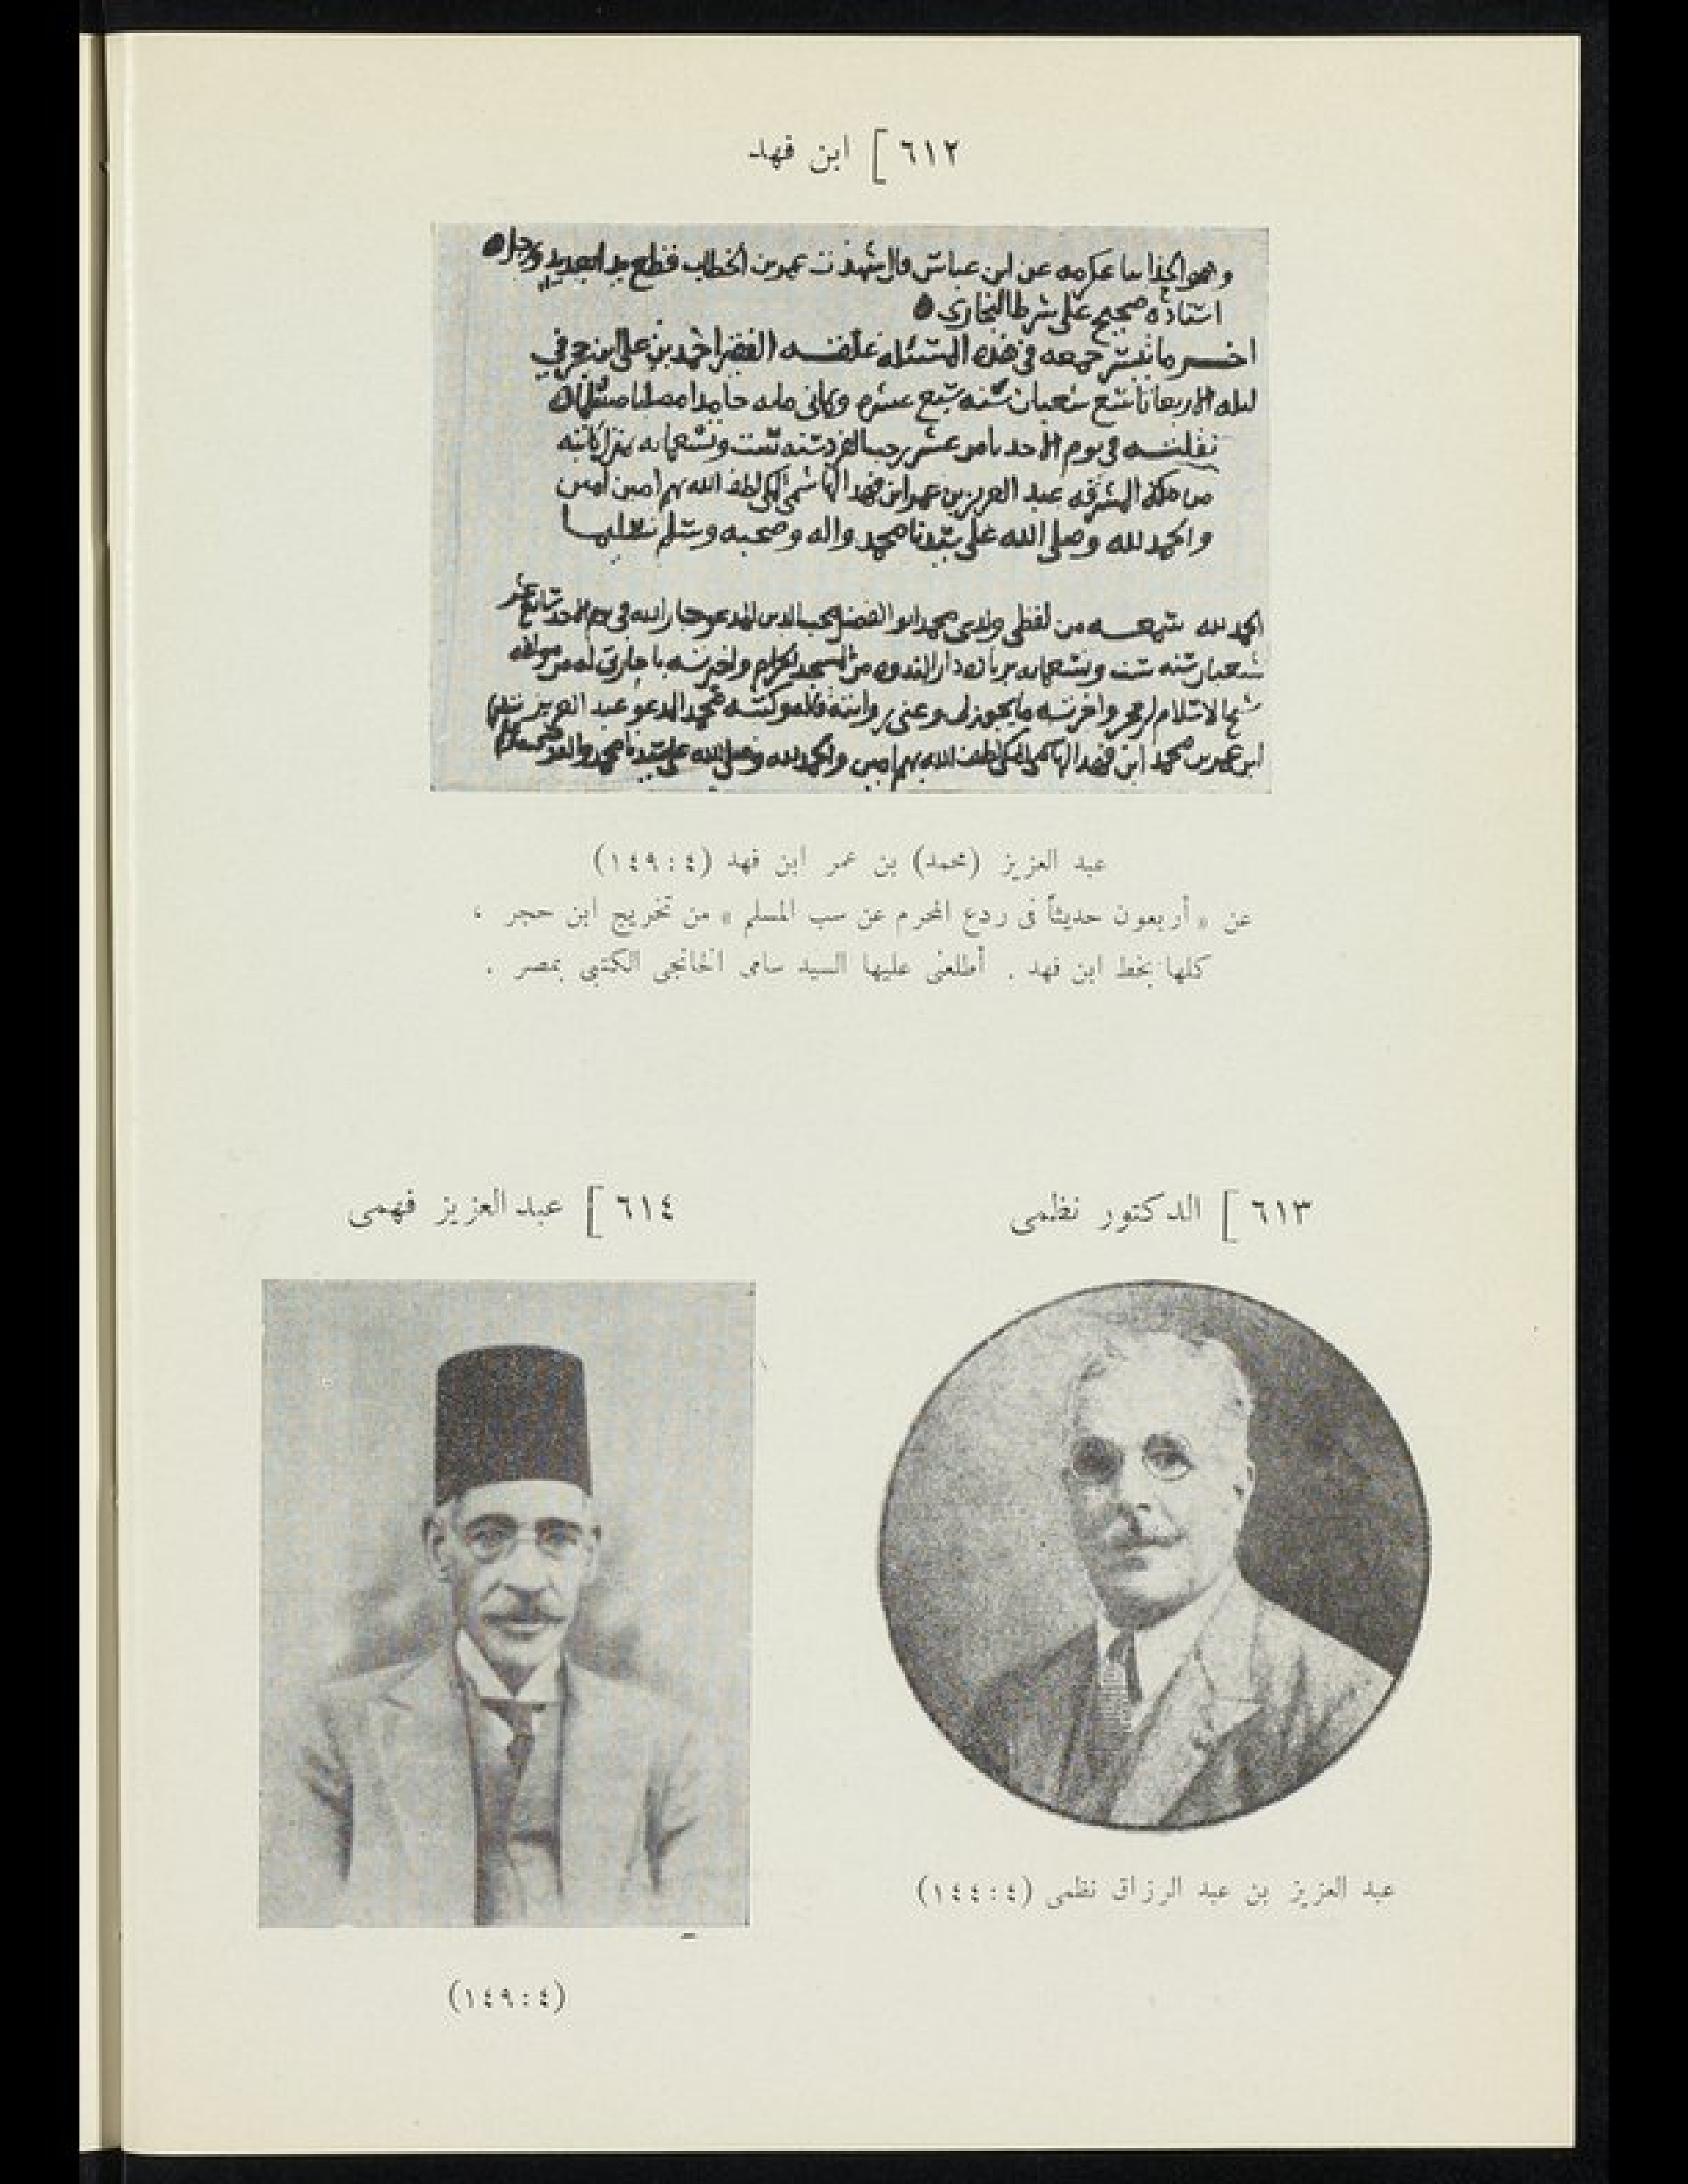 ٦١٢ [ ابن فهد
وهو الحذا عكرمه عن ابن عباس قال شهدت عمر بن الخطاب قطع يد
اسناده صحيح على شرط البخارى
اخر ما تيسر جمعه في هذه المسئله علقه الفقير احمد بن على ابن حجر في
ليله الاربعا تاسع شعبان سنه سبع عشره وثمانى مايه حامدا مصليا
نقلته في يوم الاحد ثامن عشر رجب الفرد سنه ست وتسعمايه
من مكة المشرفه عبد العزيز بن عمر ابن فهد الهاشمى المكى لطف الله بهم امين امين
والحمد لله وصلى الله على سيدنا محمد واله وصحبه وسلم تسليما
الحمد لله سمعه من لفظى ولدى محمد ابو الفضل محب الدين المدعو جار الله في يوم الاحد
شعبان سنه ست وتسعمايه دار الندوه من المسجد الحرام واخبرته
شيخ الاسلام ابن حجر واجزته ما يجوز لى وعنى روايته قاله وكتبه محمد المدعو عبد العزيز
ابن عمر بن محمد ابن فهد الهاشمى المكى لطف الله بهم امين والحمد لله وصلى الله على سيدنا محمد
عبد العزيز (محمد) بن عمر ابن فهد (٤ : ١٤٩)
عن « أربعون حديثاً فى ردع المجرم عن سب المسلم » من تخريج ابن حجر ،
كلها بخط ابن فهد . أطلعنى عليها السيد سامى الخانجى الكتبى بمصر .
٦١٣ [ الدكتور نظمى
عبد العزيز بن عبد الرزاق نظمى (٤ : ١٤٤)
٦١٤ [ عبد العزيز فهمى
(٤ : ١٤٩)